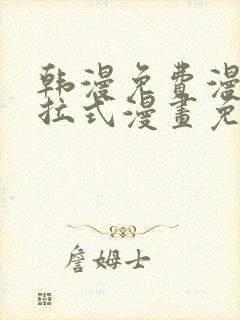 韩漫免费漫
拉式漫畫免
詹姆士